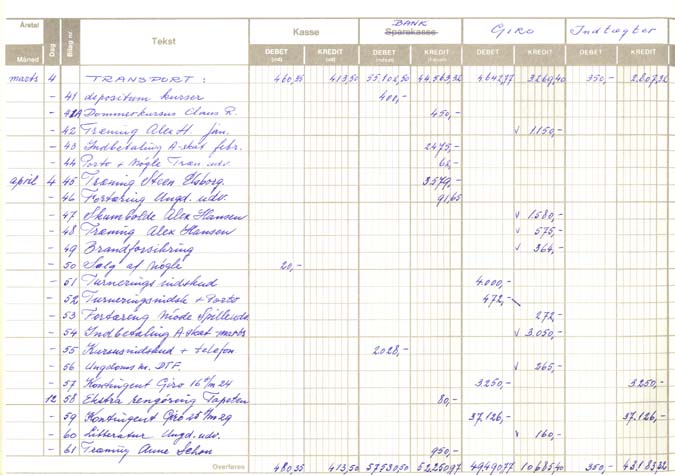 BANK
Årstal Dag Bilag nr Tekst Kasse Sparekasse GIRO Indtægter
Måned DEBET (ind) KREDIT (ud) DEBET KREDIT DEBET KREDIT DEBET KREDIT
marts 4 TRANSPORT: 460,35 413,50 55.102,50 44.563,32 4.642,77 3269,40 350,- 2.807,32
- 41 depositum kurser 400,-
- 41A Dommerkursus Claus R. 450,-
- 42 Træning Alex H. jan. √ 1150,-
- 43 Indbetaling A-skat febr. 2475,-
- 44 Porto + Nøgle Træn. udv. 62,-
april 4 45 Træning Steen Elsborg. 3579,-
- 46 Fortæring Ungd. udv. 91,65
- 47 Skumbolde Alex Hansen √ 1580,-
- 48 Træning Alex Hansen √ 575,-
- 49 Brandforsikring √ 364,-
- 50 Salg af Nøgle 20,-
- 51 Turnerings indskud 4.000,-
- 52 Turneringsindsk + Porto 472,-
- 53 Fortæring Møde Spilleudv 272,-
- 54 Indbetaling A-skat marts √ 3.050,-
- 55 Kursusindskud + telefon 2028,-
- 56 Ungdoms m. DTF. √ 265,-
- 57 Kontingent Giro 3.250,- 3.250,-
12 58 Ekstra rengøring Tapeten 80,-
- 59 Kontingent Giro 37.126,- 37.126,-
- 60 Litteratur Ungd. udv. √ 160,-
- 61 Træning Anne Schou 950,-
Overføres 480,35 413,50 57530,50 52250,97 49490,77 10685,40 350,- 43183,32